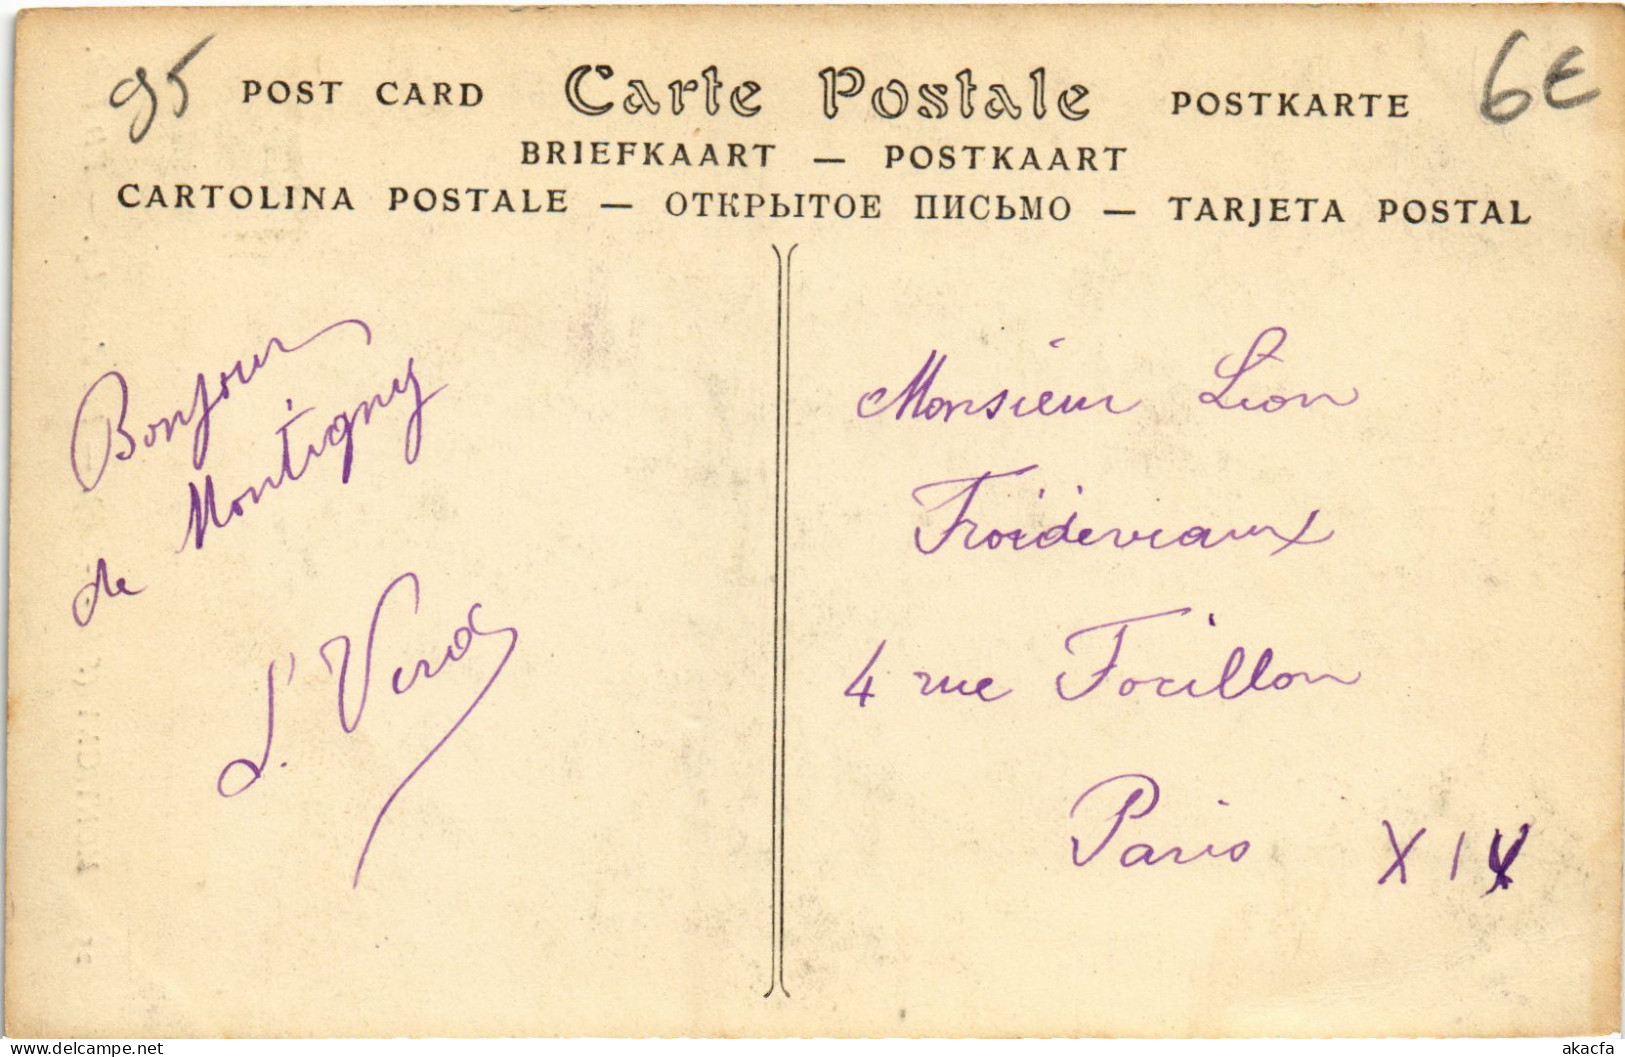 95 POST CARD Carte Postale POSTKARTE 6€
BRIEFKAART — POSTKAART
CARTOLINA POSTALE — ОТКРЫТОЕ ПИСЬМО — TARJETA POSTAL
Bonjour
de Montigny
L.
Monsieur Léon
Froidevaux
4 rue
Paris XIV
akacfa
delcampe.net